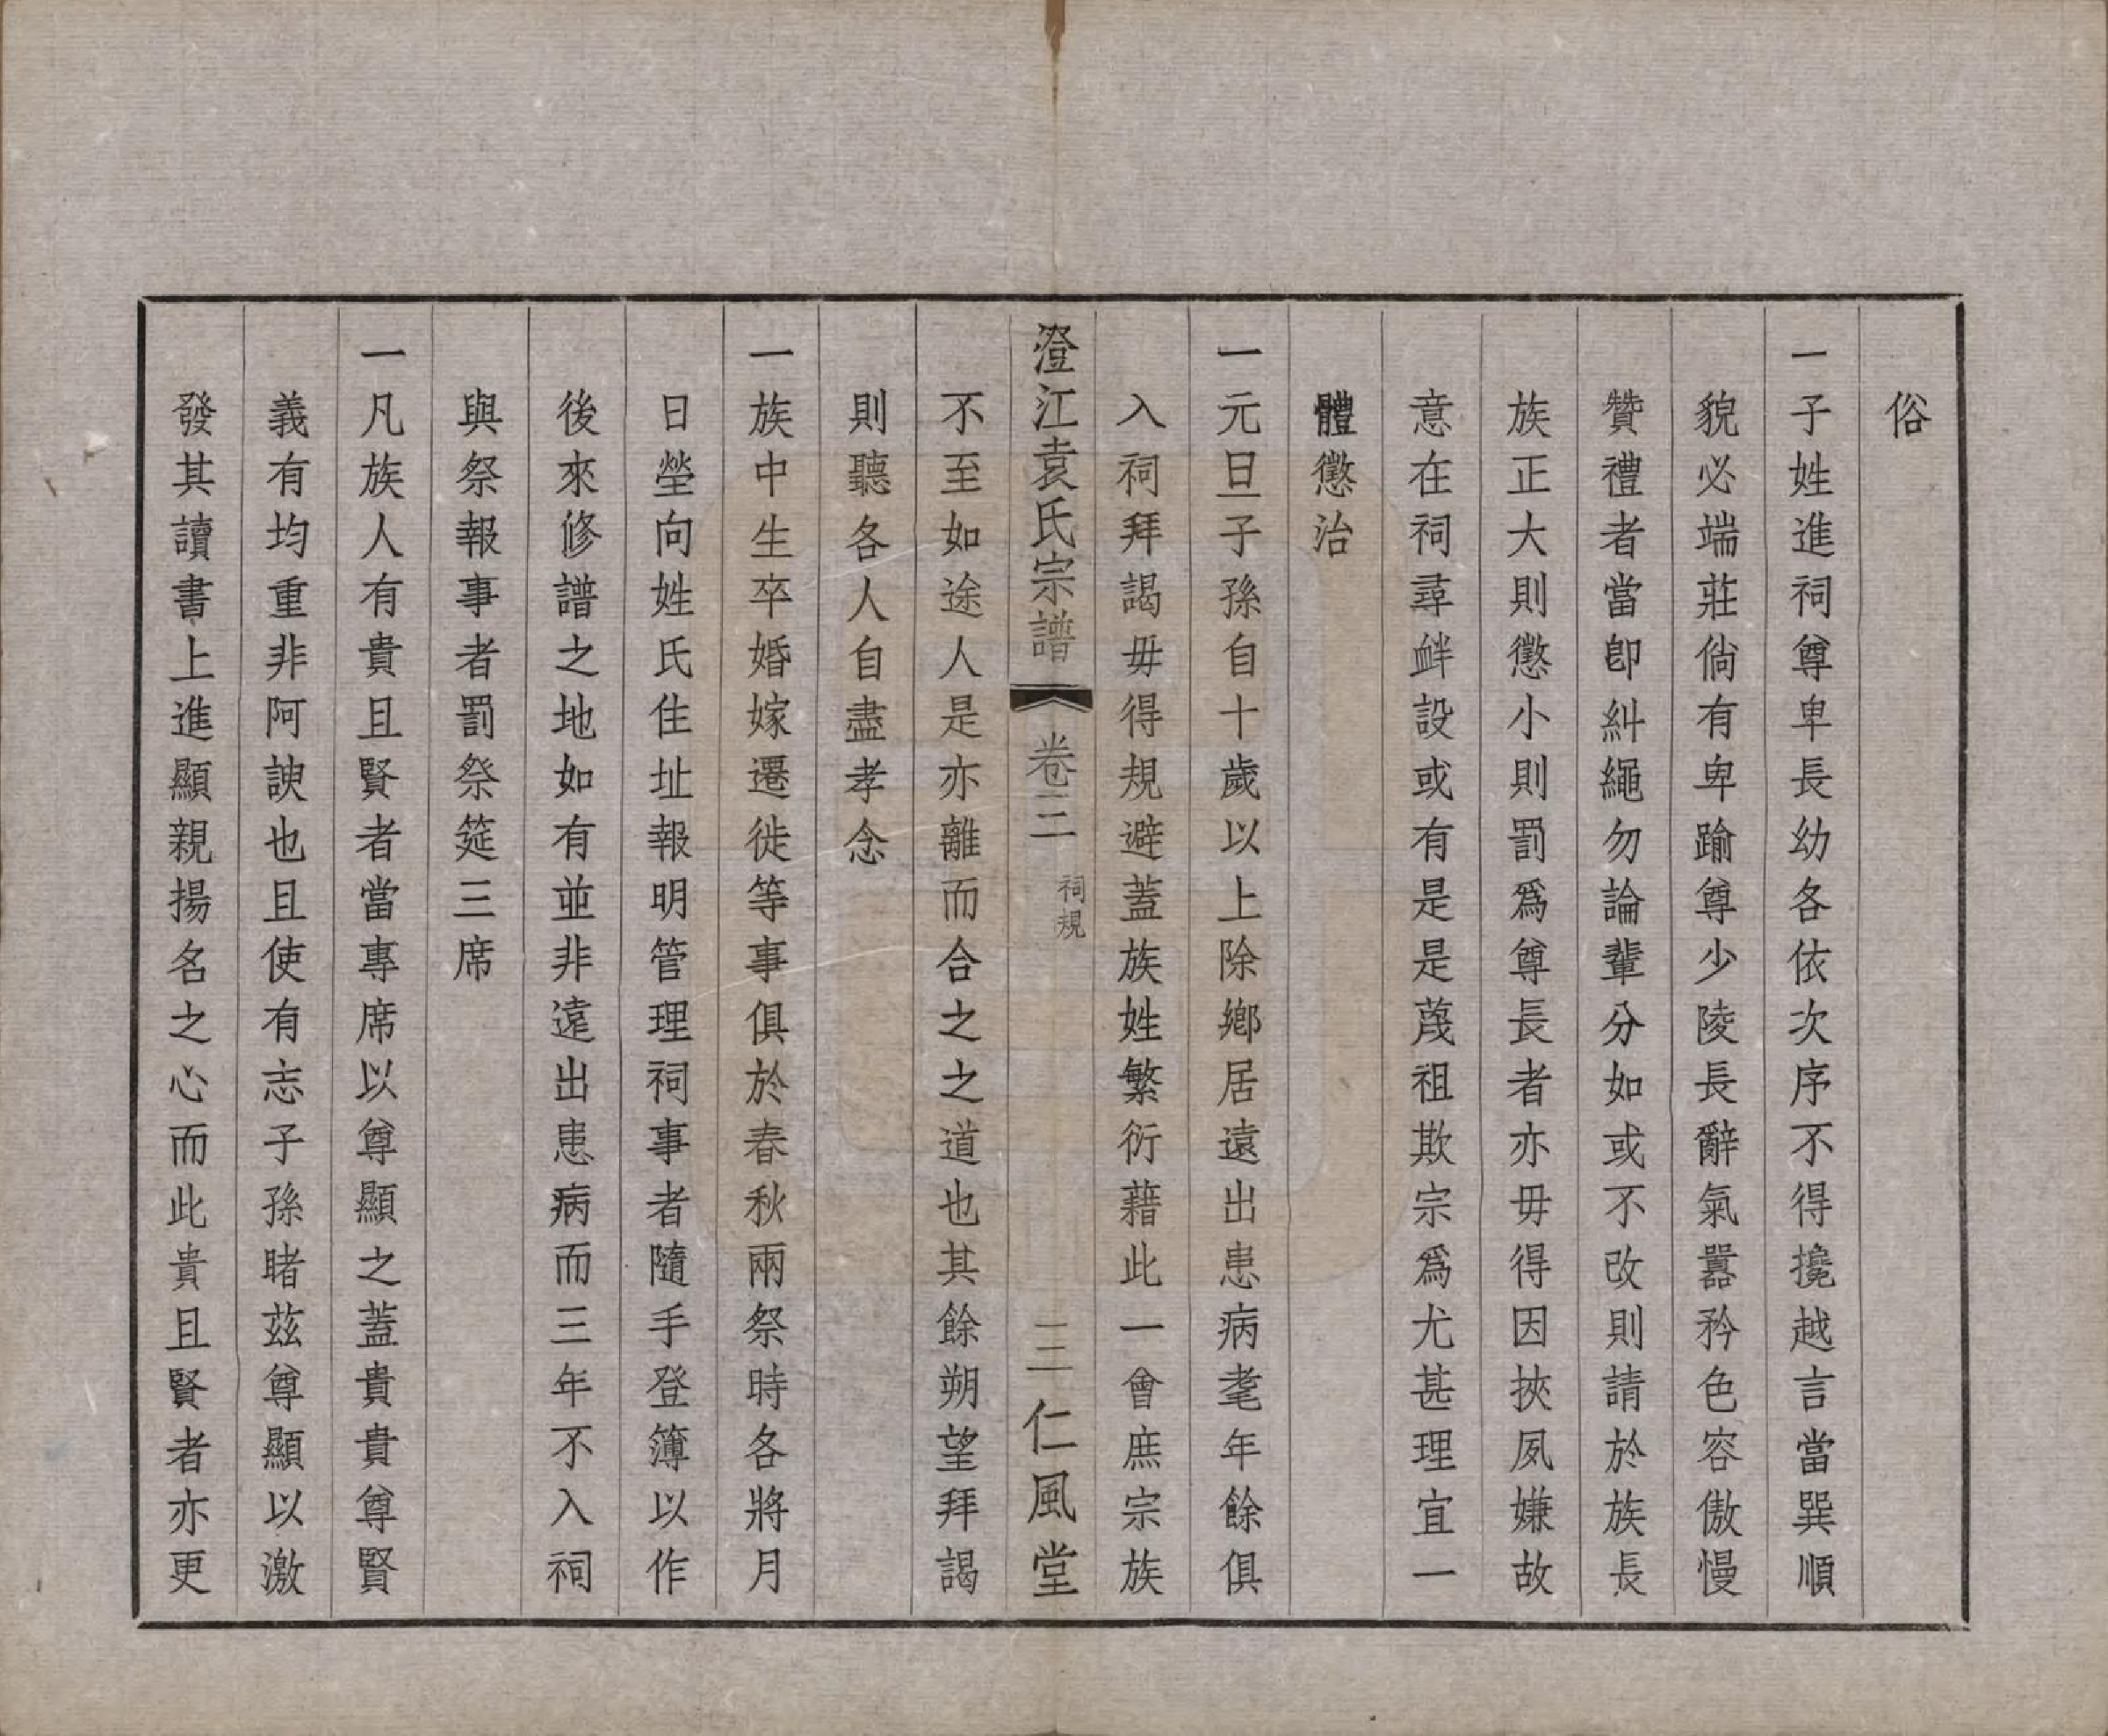 俗
一子姓進祠尊卑長幼各依次序不得攙越言當巽順
貌必端莊倘有卑踰尊少陵長辭氣囂矜色容傲慢
贊禮者當卽糾繩勿論輩分如或不改則請於族長
族正大則懲小則罰爲尊長者亦毋得因挾夙嫌故
意在祠尋衅設或有是是蔑祖欺宗爲尤甚理宜一
體懲治
一元旦子孫自十歲以上除鄉居遠出患病耄年餘俱
入祠拜謁毋得規避蓋族姓繁衍藉此一會庶宗族
澄江袁氏宗譜 卷三 祠規 三 仁風堂
不至如途人是亦離而合之之道也其餘朔望拜謁
則聽各人自盡孝念
一族中生卒婚嫁遷徙等事俱於春秋兩祭時各將月
日塋向姓氏住址報明管理祠事者隨手登簿以作
後來修譜之地如有並非遠出患病而三年不入祠
與祭報事者罰祭筵三席
一凡族人有貴且賢者當專席以尊顯之蓋貴貴尊賢
義有均重非阿諛也且使有志子孫睹茲尊顯以激
發其讀書上進顯親揚名之心而此貴且賢者亦更